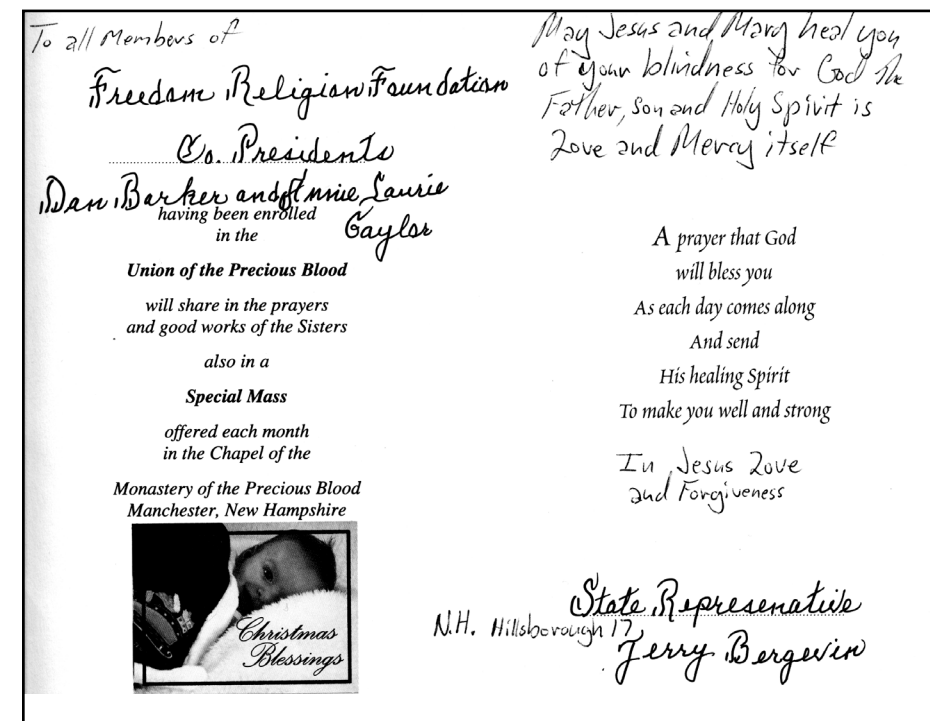 To all Members of
Freedom Religion Foundation
Co. Presidents
Dan Barker and Annie Laurie
Gaylor
having been enrolled
in the
Union of the Precious Blood
will share in the prayers
and good works of the Sisters
also in a
Special Mass
offered each month
in the Chapel of the
Monastery of the Precious Blood
Manchester, New Hampshire
Christmas
Blessings
May Jesus and Mary heal you
of your blindness for God the
Father, Son and Holy Spirit is
Love and Mercy itself
A prayer that God
will bless you
As each day comes along
And send
His healing Spirit
To make you well and strong
In Jesus Love
and Forgiveness
State Represenative
N.H. Hillsborough 17
Jerry Bergevin